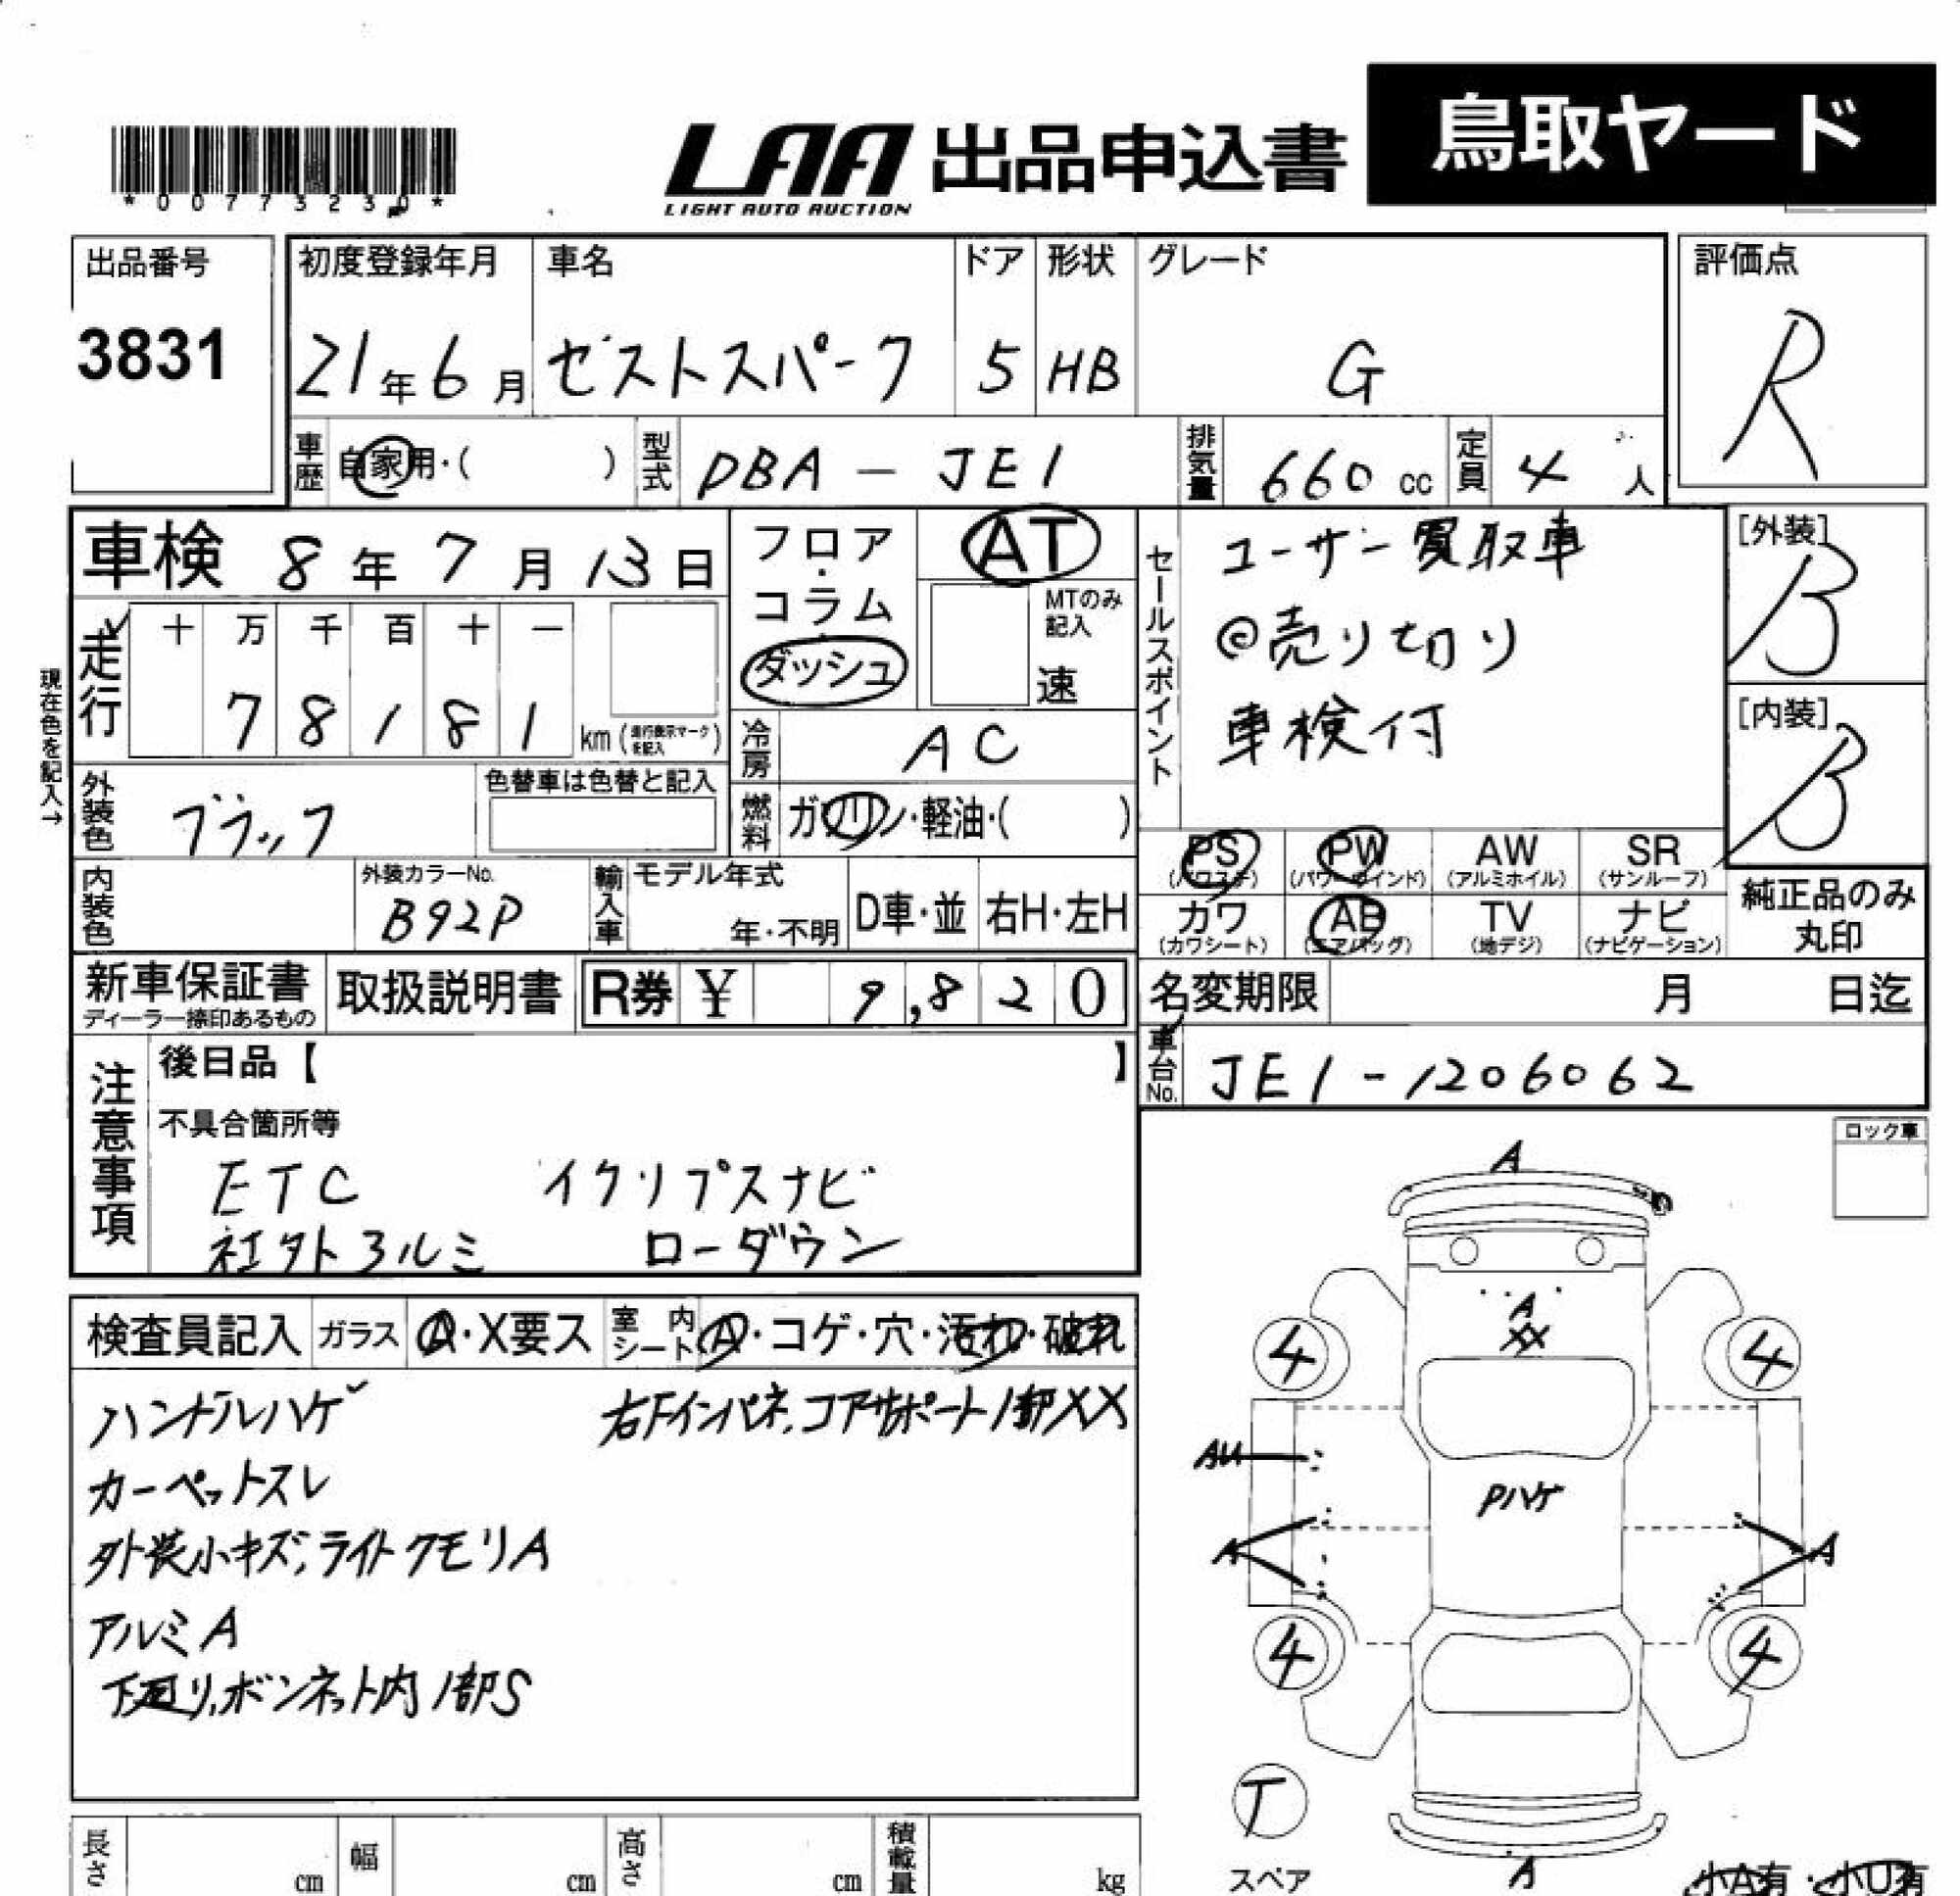 *00773230*
LAA 出品申込書 鳥取ヤード
LIGHT AUTO AUCTION
出品番号 初度登録年月 車名 ドア 形状 グレード 評価点
3831 21年6月 ゼストスパーク 5 HB G R
車歴 自家用・( ) 型式 DBA-JE1 排気量 660cc 定員 4人
車検 8年7月13日 フロア・コラム・ダッシュ AT
MTのみ記入 速
セールスポイント
ユーザー買取車
◎売り切り
車検付
[外装] B
[内装] B
現在色を記入→
走行 十 万 千 百 十 一
78181 km (走行表示マークを記入)
冷房 AC
外装色 ブラック 色替車は色替と記入
燃料 ガソリン・軽油・( )
PS (パワステ) PW (パワーウインド) AW (アルミホイル) SR (サンルーフ)
カワ (カワシート) AB (エアバッグ) TV (地デジ) ナビ (ナビゲーション)
純正品のみ丸印
内装色 外装カラーNo. B92P 輸入車 モデル年式 年・不明 D車・並 右H・左H
新車保証書 ディーラー捺印あるもの 取扱説明書 R券 ¥ 9,820 名変期限 月 日迄
車台No. JE1-1206062
注意事項 後日品【 】
不具合箇所等
ETC イクリプスナビ
社外アルミ ローダウン
ロック車
検査員記入 ガラス A・X要ス 室内シート A・コゲ・穴・汚れ・破れ
ハンドルハゲ 右Fインパネ、コアサポート1部XX
カーペットスレ
外装小キズ、ライトクモリA
アルミA
下廻り、ボンネット内1部S
A
A
XX
4 4
AU
Pハゲ
A A
4 4
T
スペア
A
小A有・小U有
長さ cm 幅 cm 高さ cm 積載量 kg